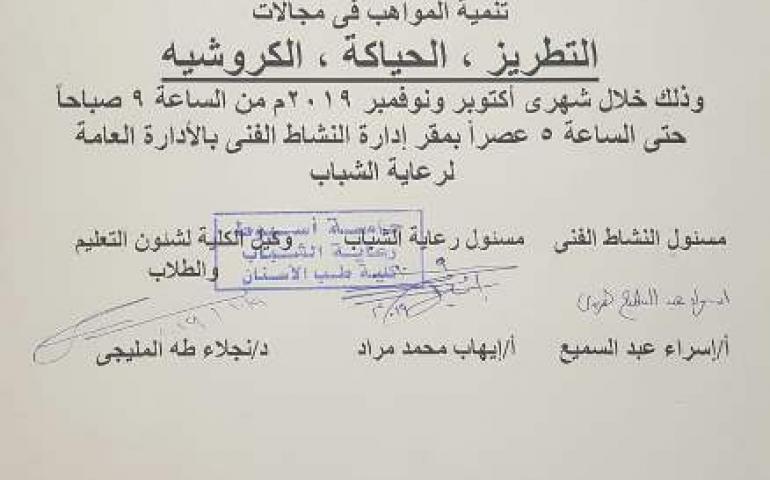 تنمية المواهب فى مجالات
التطريز ، الحياكة ، الكروشيه
وذلك خلال شهرى أكتوبر ونوفمبر ٢٠١٩م من الساعة ٩ صباحاً
حتى الساعة ٥ عصراً بمقر إدارة النشاط الفنى بالأدارة العامة
لرعاية الشباب
مسئول النشاط الفنى
مسئول رعاية الشباب
وكيل الكلية لشئون التعليم
والطلاب
جامعة أسيوط
رعاية الشباب
كلية طب الأسنان
أ/إسراء عبد السميع
أ/إيهاب محمد مراد
د/نجلاء طه المليجى